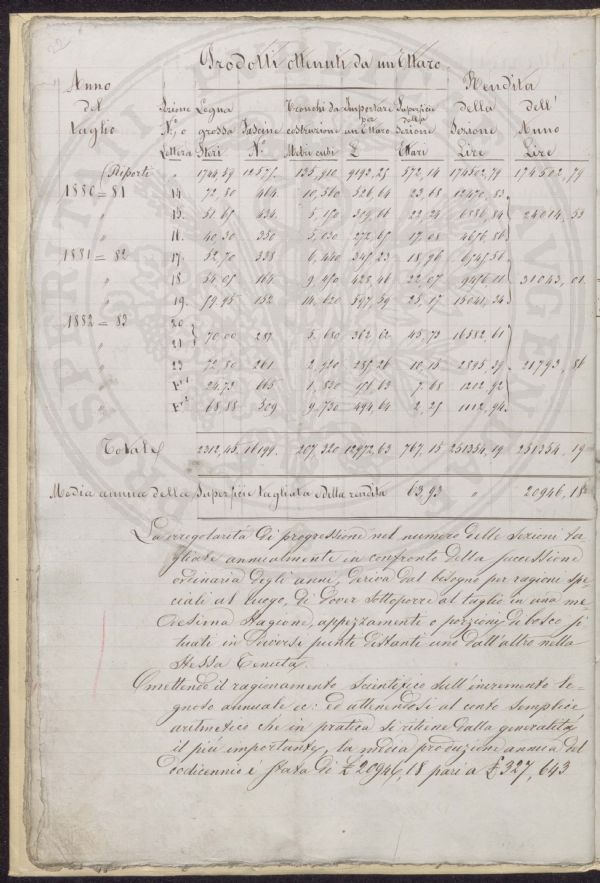 Prodotti ottenuti da un Ettaro
Anno del taglio | Sezione N.º o Lettera | Legna grossa Steri | Fascine N.º | Tronchi da costruzione Metri cubi | Importare per un Ettaro £ | Superficie della Sezione Ettari | Rendita della Sezione Lire | Rendita dell' Anno Lire
Riporti | " | 1744,59 | 12577. | 135,910 | 9193,25 | 572,14 | 174502,79 | 174502,79
1880=81 | 14. | 72,80 | 464. | 10,560 | 526,64 | 23,68 | 12470,83
" | 15. | 51,67 | 434. | 5,150 | 309,66 | 22,24 | 6886,84 | 24014,53
" | 16. | 40,30 | 350 | 5,030 | 272,67 | 17,08 | 4656,86
1881=82 | 17. | 52,70 | 338 | 6,440 | 345,23 | 18,96 | 6545,56
" | 18 | 54,05 | 164. | 9,450 | 428,46 | 22,07 | 9456,11 | 31043,01
" | 19. | 79,95 | 152 | 14,620 | 597,59 | 25,17 | 15041,34
1882=83 | 20
" | 21 | 70,00 | 287 | 5,680 | 362,62 | 45,73 | 16582,61
" | 23 | 72,80 | 261 | 2,920 | 285,26 | 10,15 | 2895,39 | 21793,86
" | 24,73 | 665 | 1,830 | 157,63 | 7,68 | 1212,92
" | 68,88 | 509 | 9,730 | 494,64 | 2,25 | 1112,94
Totale | 2312,45 | 16199. | 207,320 | 12972,63 | 767,15 | 251354,19 | 251354,19
Media annua della Superficie tagliata e della rendita | 63,93 | " | 20946,18
La irregolarità di progressione nel numero delle sezioni ta-
gliate annualmente in confronto della successione
ordinaria degli anni, deriva dal bisogno per ragioni spe
ciali al luogo, di dover sottoporre al taglio in una me-
desima Stagione, appezzamenti o porzioni di bosco si
tuati in diversi punti distanti uno dall'altro nella
Stessa Tenuta.
Omettendo il ragionamento scientifico dell'incremento le-
gnoso annuale ec: ed attenendosi al conto semplice
aritmetico che in pratica si ritiene dalla generalità
il più importante, la media produzione annua del
dodicennio è stata di £ 20946,18 pari a £ 327,643